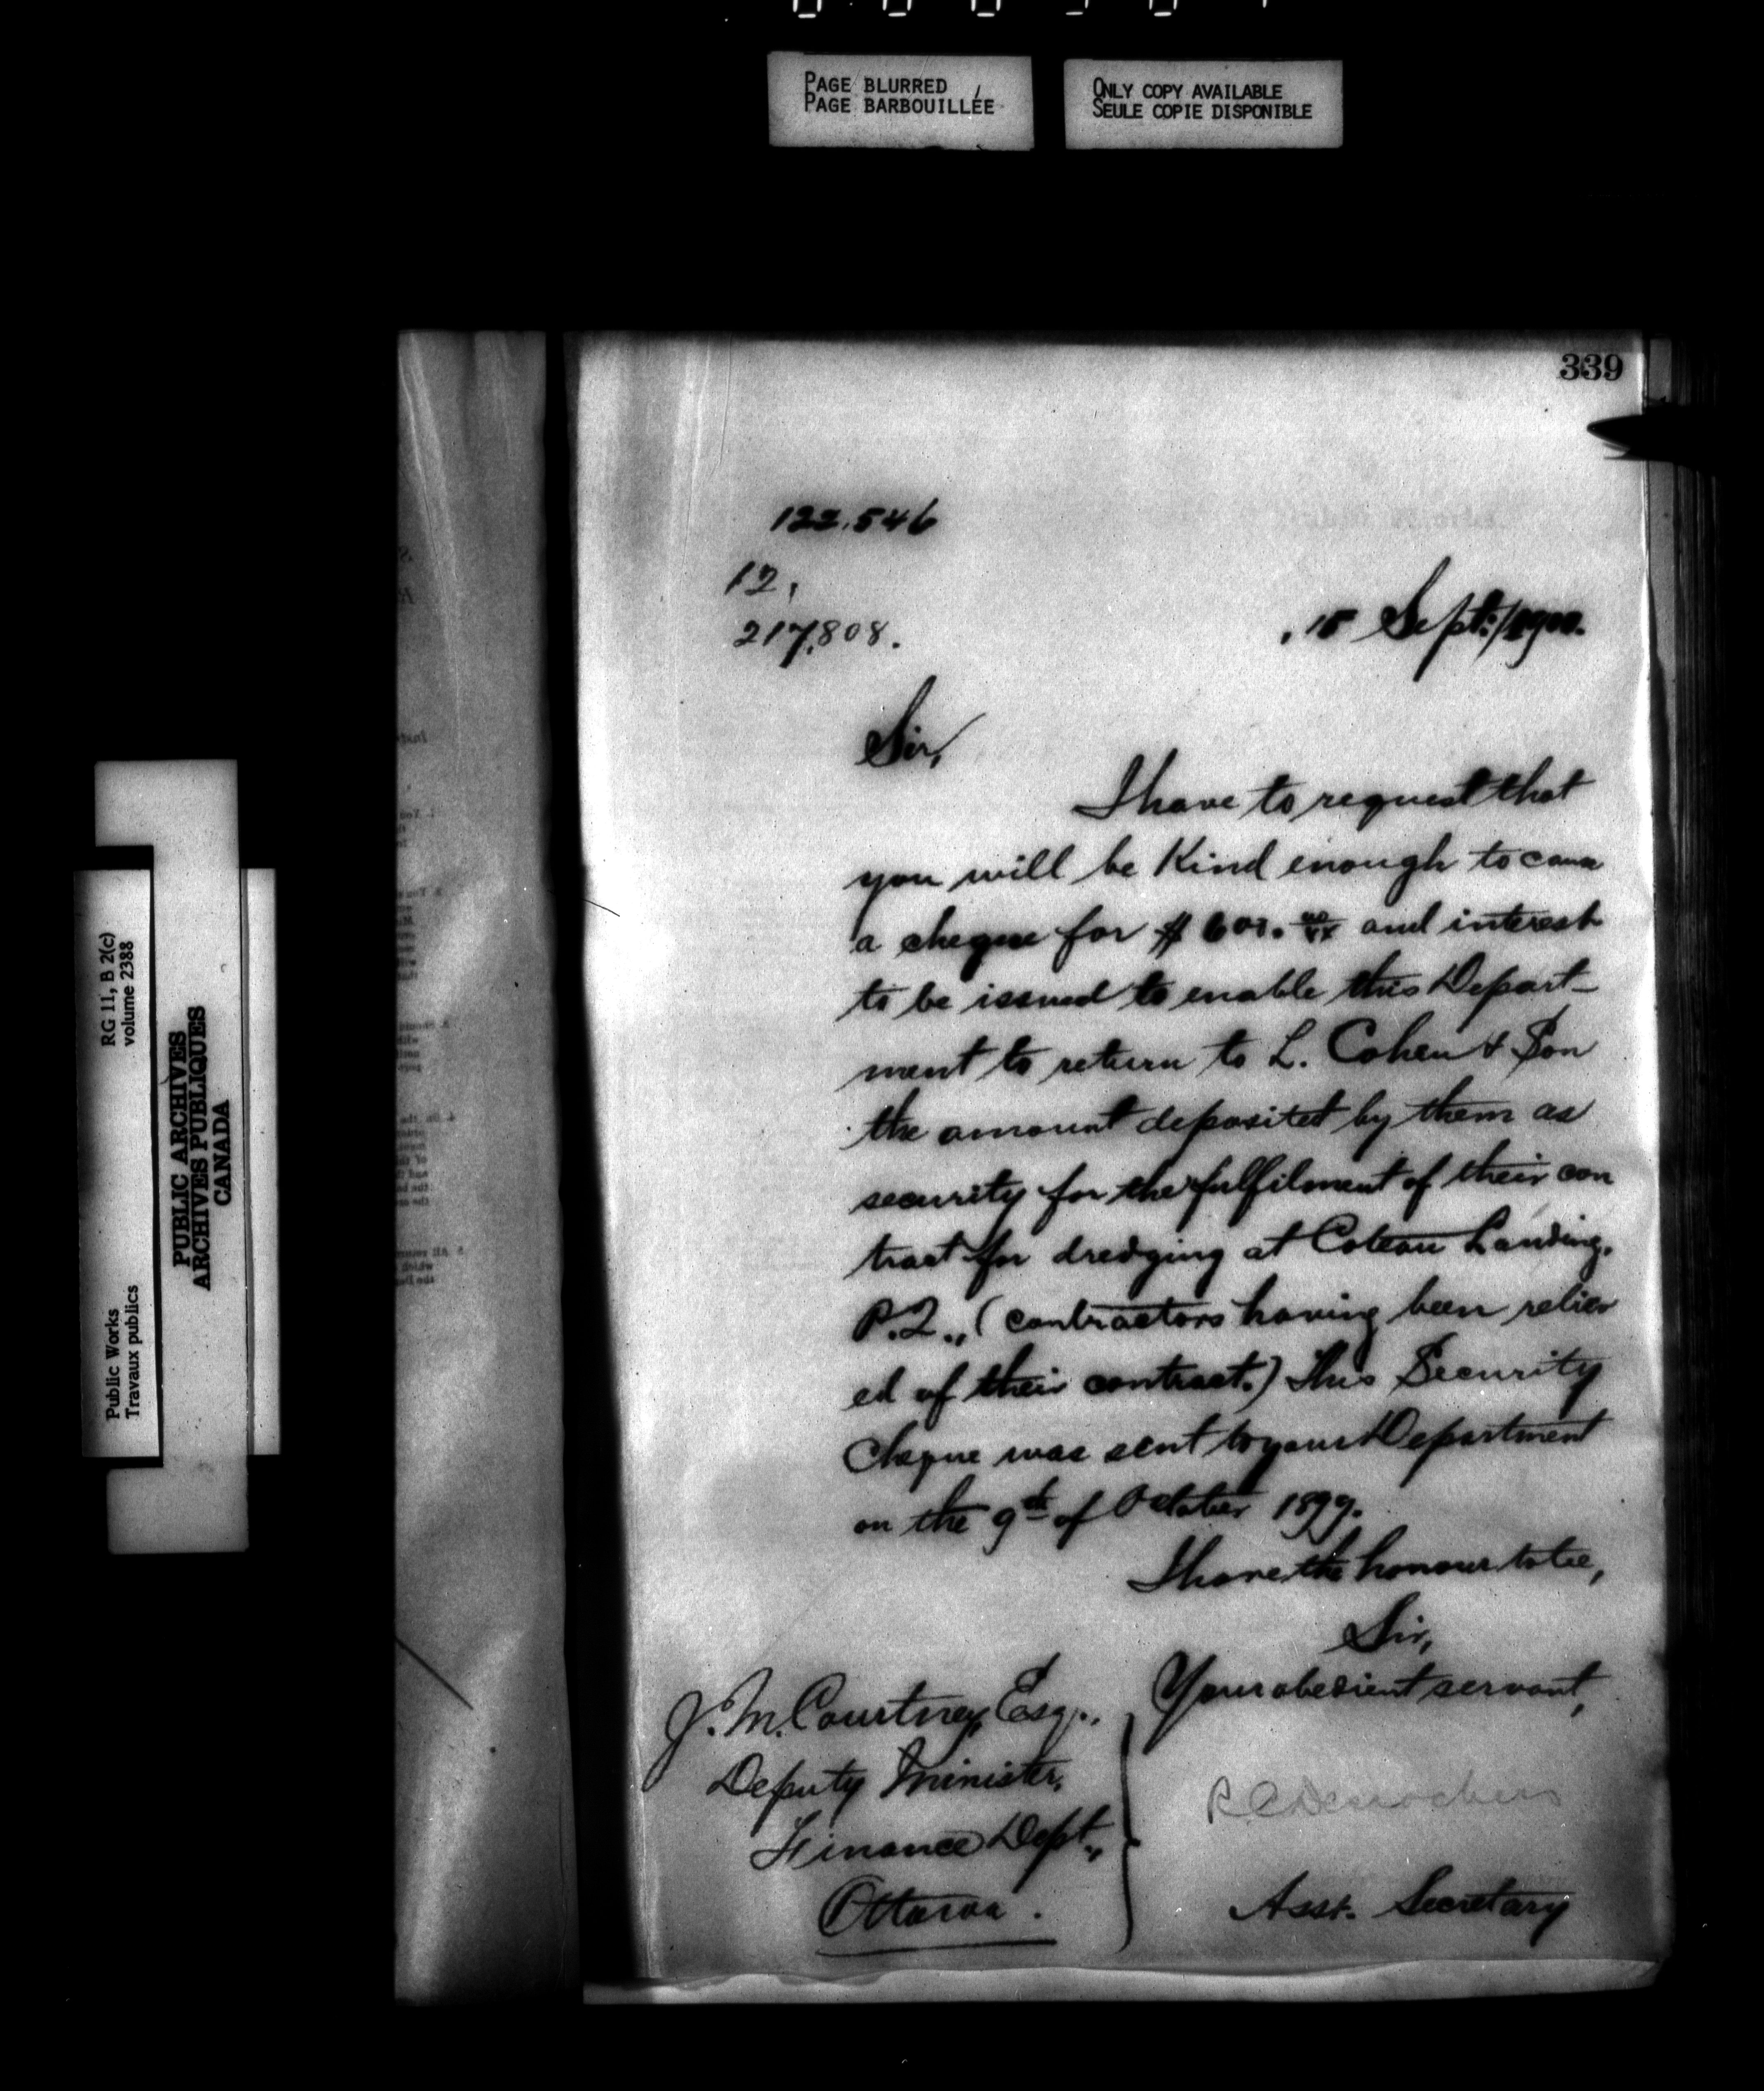 PAGE BLURRED
PAGE BARBOUILLÉE
ONLY COPY AVAILABLE
SEULE COPIE DISPONIBLE
339
122,546
12,
217,808.
15 Sept:/1900.
Sir,
I have to request that
you will be Kind enough to cause
a cheque for $600. 00/xx and interest
to be issued to enable this Depart-
ment to return to L. Cohen & Son
the amount deposited by them as
security for the fulfilment of their con
tract for dredging at Coteau Landing,
P.Q., (contractors having been reliev
ed of their contract.) This Security
Cheque was sent to your Department
on the 9th of October 1899.
I have the honour to be,
Sir,
Your obedient servant,
R C Desrochers
Asst. Secretary
J. M. Courtney, Esq.,
Deputy Minister,
Finance Dept.,
Ottawa.
RG 11, B 2(c)
volume 2388
Public Works
Travaux publics
PUBLIC ARCHIVES
ARCHIVES PUBLIQUES
CANADA